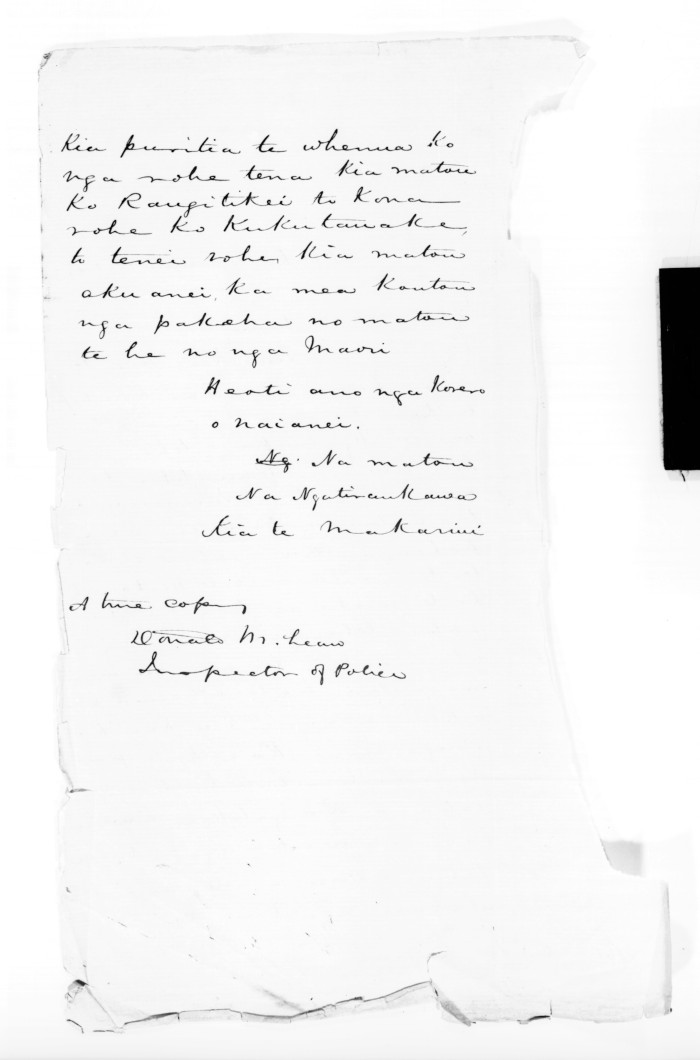 Kia puritia te whenua ko
nga rohe tena kia matou
Ko Rangitikei to Kona
rohe Ko Kukutauake,
to tenei rohe, Kia matou
akuanei, ka mea koutou
nga pakeha no matou
te he no nga Maori
Heoti ano nga Korero
o naianei.
Ng. Na matou
Na Ngatiraukawa
Kia te Makarini
A true copy
Donald McLean
Inspector of Police